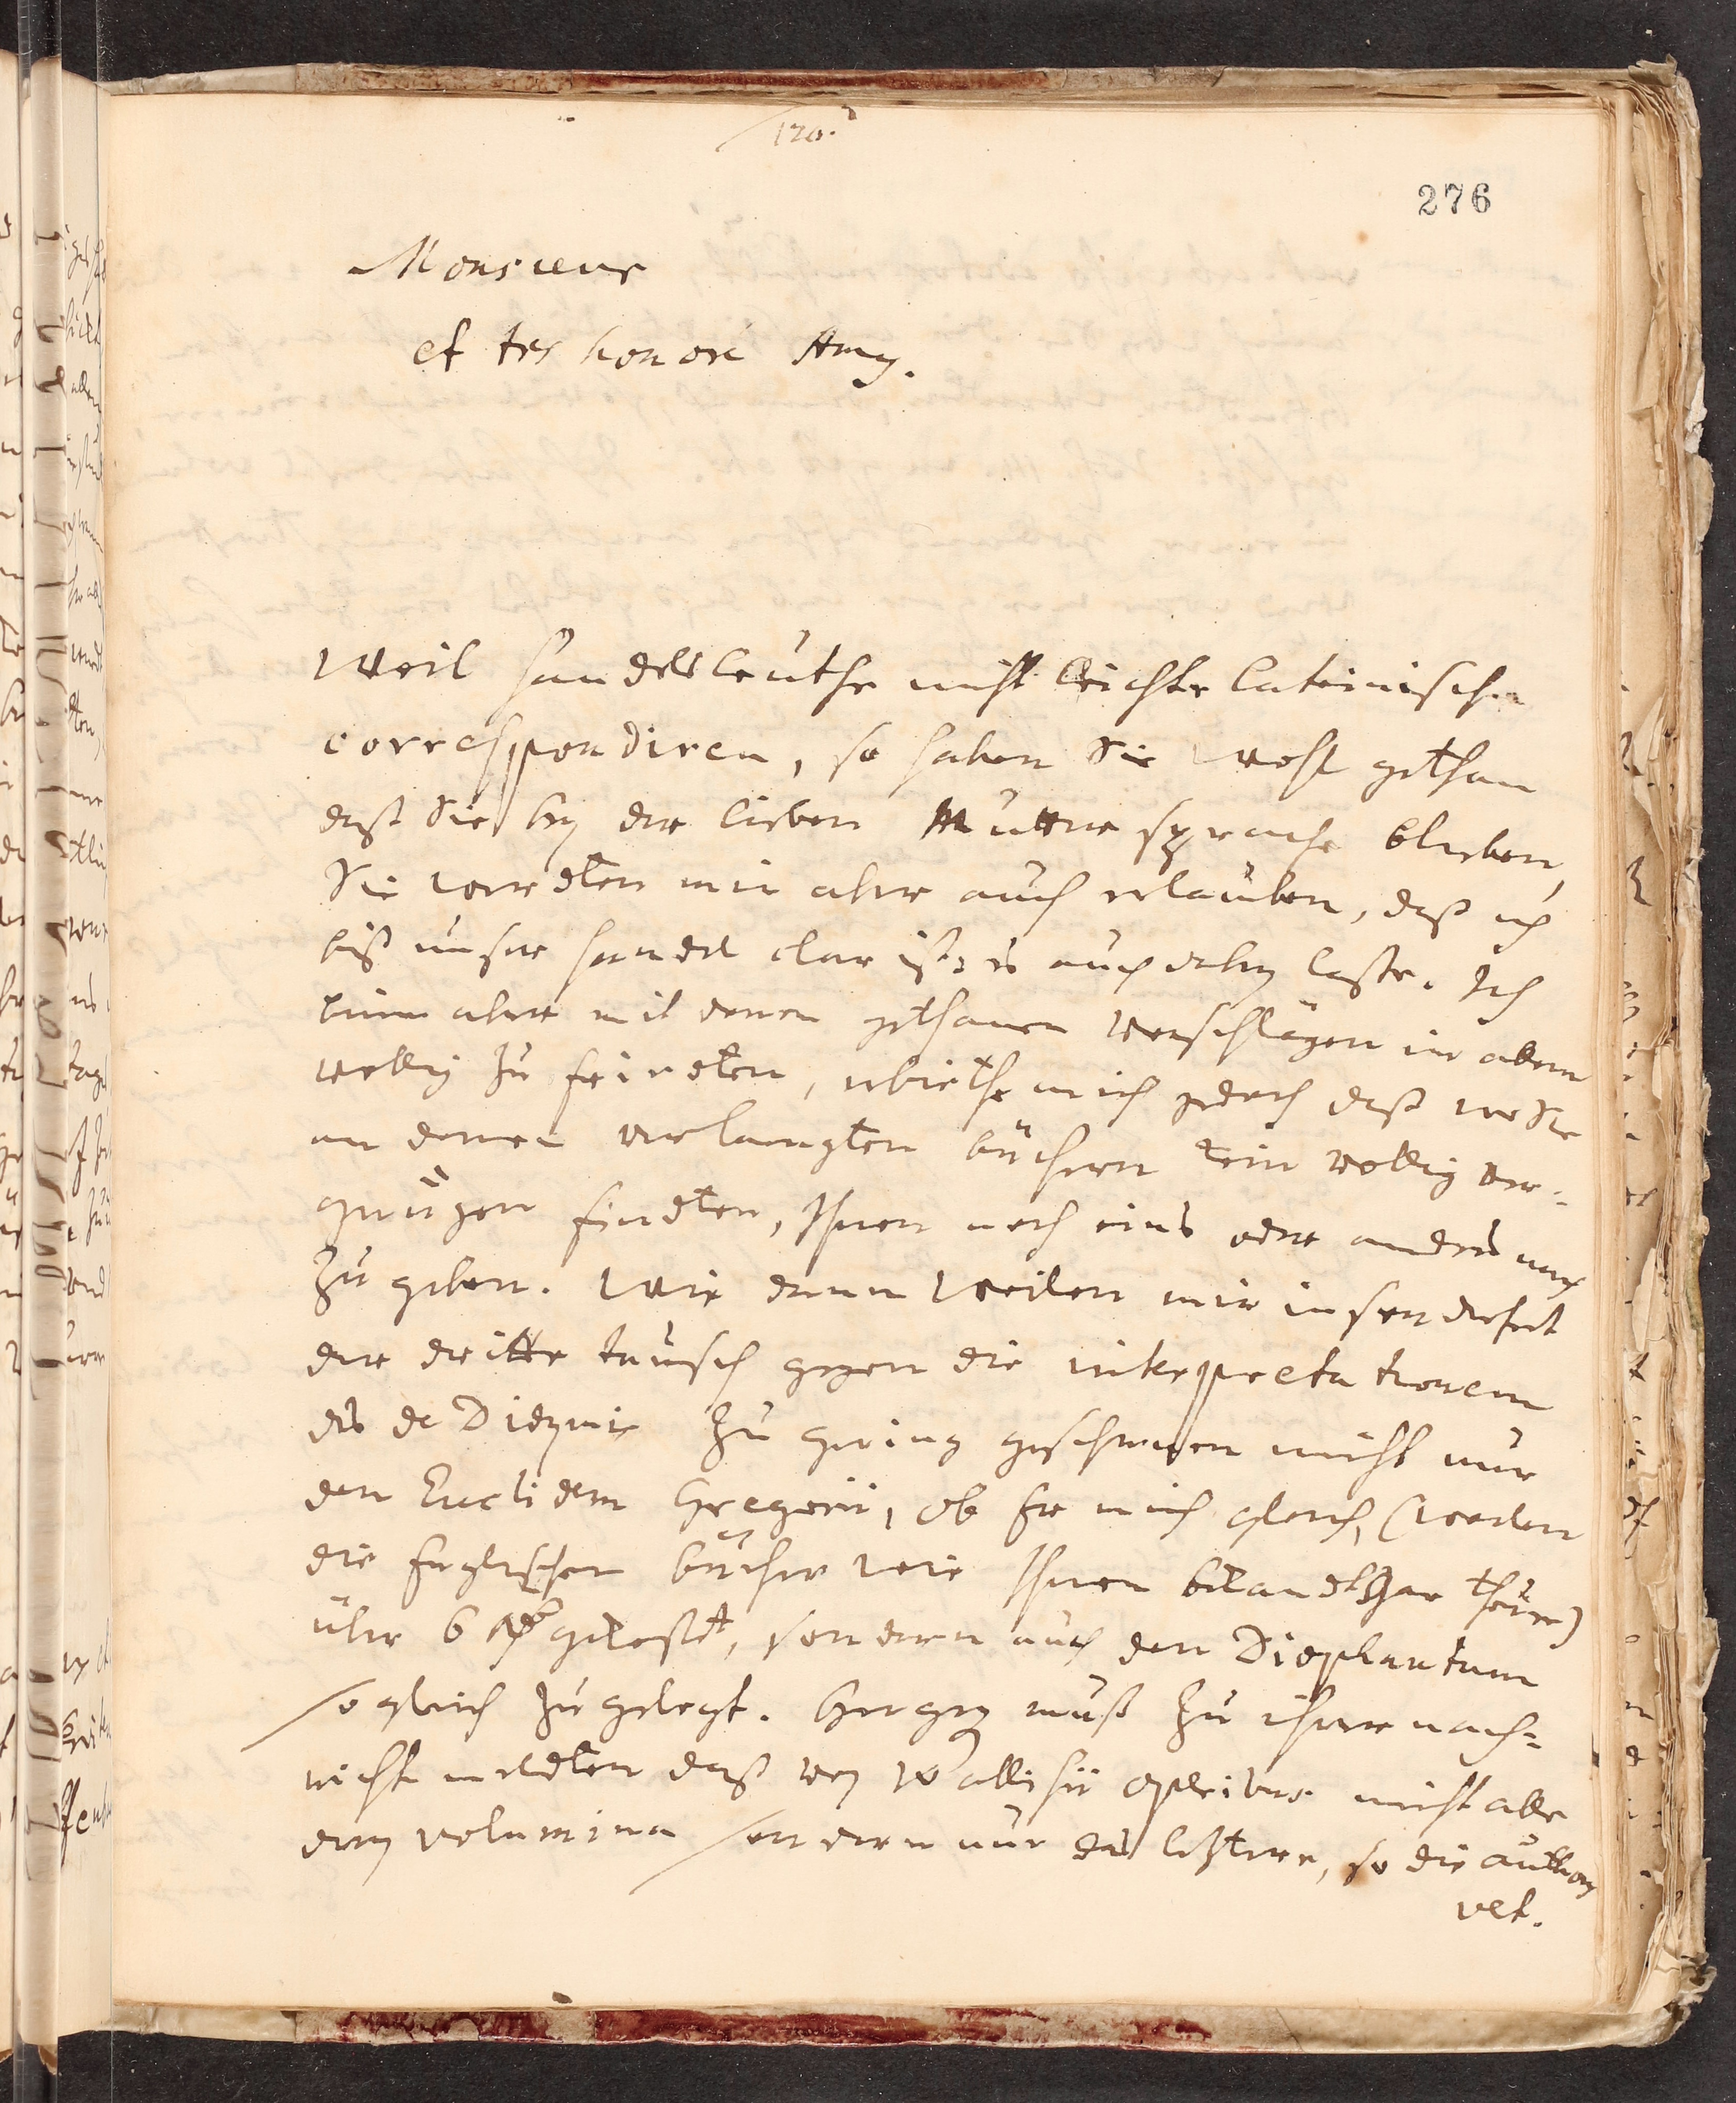 120.
276
Monsieur
et tres honoré Amy.
Weil handelsleuthe nicht leichte lateinische
correspondiren, so haben Sie wohl gethan
daß Sie bey der lieben Mutter sprache blieben,
Sie werdten mir aber auch erlauben, daß ich
biß unser handel clar ist, es auch dabey laße. Ich
binn aber mit denen gethanen Vorschlägen in allem
vollig zu friedten, erbiethe mich jedoch daß wo Sie
an denen verlangten büchern kein vollig ver-
gnügen findten, Ihnen noch eins oder anders nach
zu geben. Wie dann weilen mir
der dritte tausch gegen die interpretationem
des de Diezmis zu gering geschienen nicht nur
den Euclidem Gregorii, ob Er mich gleich, (weilen
die Englischen bücher wie Ihnen bekandt gar theüer)
über 6 gekostet, sondern auch den Diophantum
so gleich zu gelegt. Hergeg muß zu ihrer nach-
richt meldten daß von Wallisii operibus nicht alle
drey volumina sondern nur das letztere, so die authores
vet.